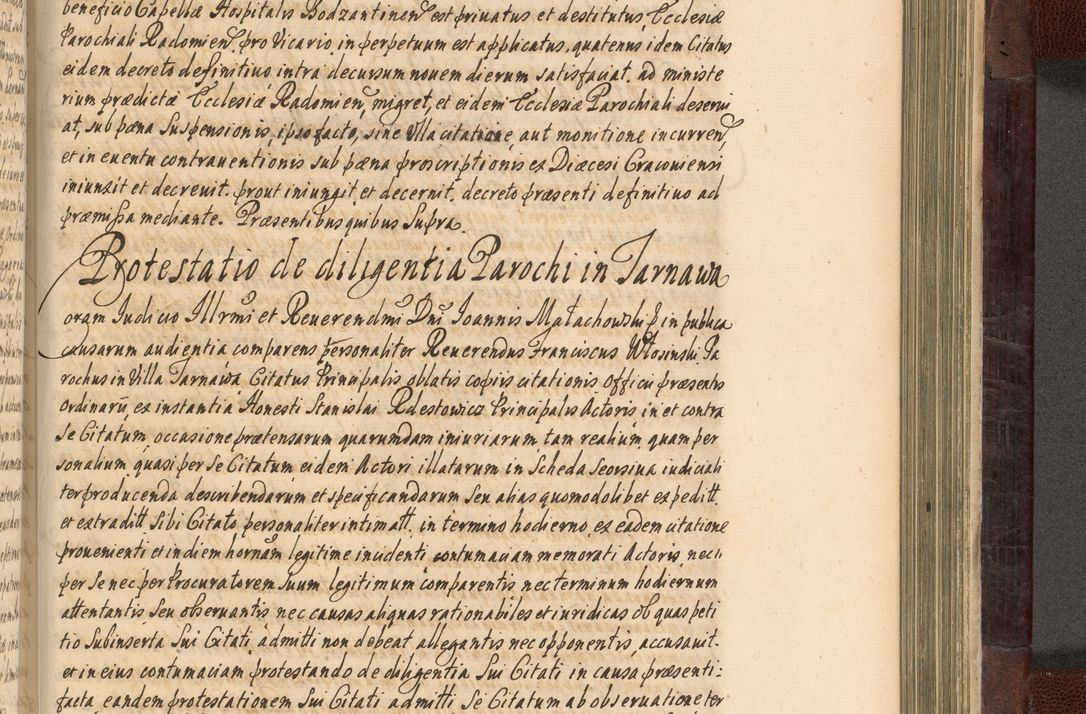 beneficio Capellæ Hospitalis Bodzantinen̄ est priuatus et destitutus, Ecclesiæ
Parochiali Radomien̄, pro Vicario in perpetuum est applicatus, quatenus idem Citatus
eidem decreto definitiuo intra decursum nouem dierum satisfaciat, ad ministe
rium prædictæ Ecclesiæ Radomien̄, migret, et eidem Ecclesiæ Parochiali deserui
at, sub pæna Suspensionis, ipso facto, sine Vlla citatione, aut monitione incurren̄,
et in euentu contrauentionis sub pæna proscriptionis ex Diæcesi Cracouiensi
iniunxit et decreuit. prout iniungit et decernit, decreto præsenti definitiuo ad
præmissa mediante. Præsentibus quibus Supra.
Protestatio de diligentia Parochi in Tarnawa
oram Iudicio Illrmi et Reuerendmi Dni Ioannis Małachowski E in publica
causarum audientia comparens personaliter Reuerendus Franciscus Włosinski Pa
rochus in Villa Tarnawa Citatus Principalis oblatis copiis citationis officii præsentis
Ordinarij, ex instantia Honesti Stanislai Rdestowicz Principalis Actoris, in et contra
Se Citatum, occasione prætensarum quarumdam iniuriarum, tam realium, quam per
sonalium, quasi per Se Citatum eidem Actori illatarum in Scheda Seorsiua iudiciali
ter producenda describendarum et specificandarum Seu alias quomodolibet expeditt.
et extraditt. Sibi Citato personaliter intimatt. in termino hodierno, ex eadem citatione
prouenienti et in diem hornam legitime incidenti contumaciam memorati Actoris, neq.
per Se nec per Procuratorem suum legitimum comparentis, nec terminum hodiernum
attentantis, Seu obseruantis, nec causas aliquas rationabiles et iuridicas ob quas peti
tio Subinserta Sui Citati, admitti non debeat allegantis nec opponentis, accusauit.
et in eius contumaciam protestando de diligentia Sui Citati in causa præsenti:
facta eandem protestationem Sui Citati admitti Se Citatum ab obseruatione ter